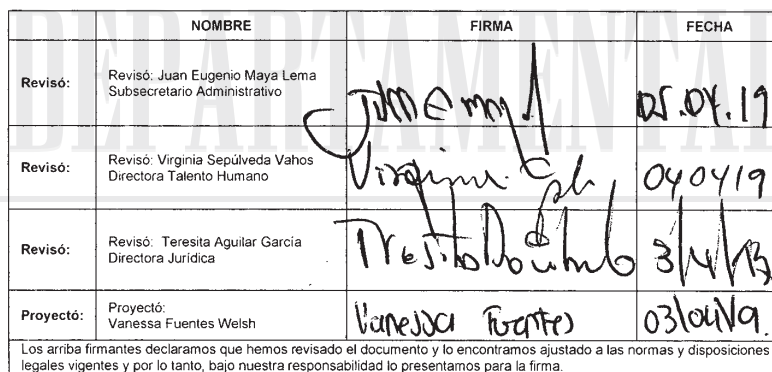 DEPARTAMENTAL
NOMBRE FIRMA FECHA
Revisó: Revisó: Juan Eugenio Maya Lema
Subsecretario Administrativo 05.04.19
Revisó: Revisó: Virginia Sepúlveda Vahos
Directora Talento Humano Virginia 040419
Revisó: Revisó: Teresita Aguilar García
Directora Jurídica 3/4/19
Proyectó: Proyectó:
Vanessa Fuentes Welsh Vanessa Fuentes 03/04/19.
Los arriba firmantes declaramos que hemos revisado el documento y lo encontramos ajustado a las normas y disposiciones
legales vigentes y por lo tanto, bajo nuestra responsabilidad lo presentamos para la firma.